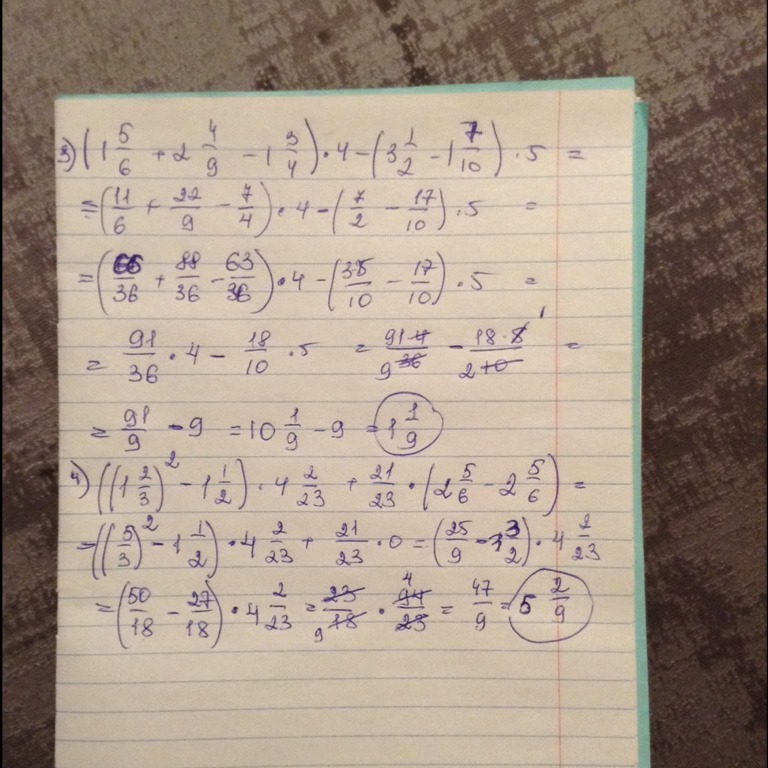 3) (1 5/6 + 2 4/9 - 1 3/4) · 4 - (3 1/2 - 1 7/10) · 5 =
= (11/6 + 22/9 - 7/4) · 4 - (7/2 - 17/10) · 5 =
= (66/36 + 88/36 - 63/36) · 4 - (35/10 - 17/10) · 5 =
= 91/36 · 4 - 18/10 · 5 = 91·4/36 9 - 18·5 1/10 2 =
= 91/9 - 9 = 10 1/9 - 9 = 1 1/9
4) ((1 2/3)² - 1 1/2) · 4 2/23 + 21/23 · (2 5/6 - 2 5/6) =
= ((5/3)² - 1 1/2) · 4 2/23 + 21/23 · 0 = (25/9 - 3/2) · 4 2/23
= (50/18 - 27/18) · 4 2/23 = 23/18 9 · 94/23 = 47/9 = 5 2/9